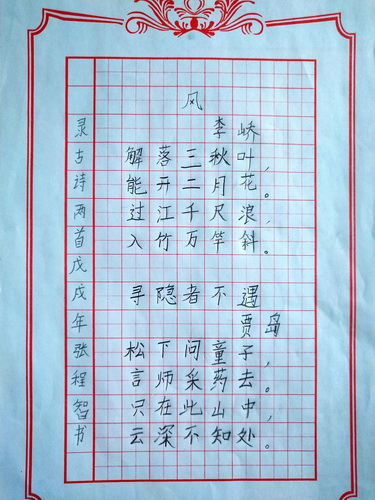 风
李峤
解落三秋叶，
能开二月花。
过江千尺浪，
入竹万竿斜。
寻隐者不遇
贾岛
松下问童子，
言师采药去。
只在此山中，
云深不知处。
录古诗两首戊戌年张程智书